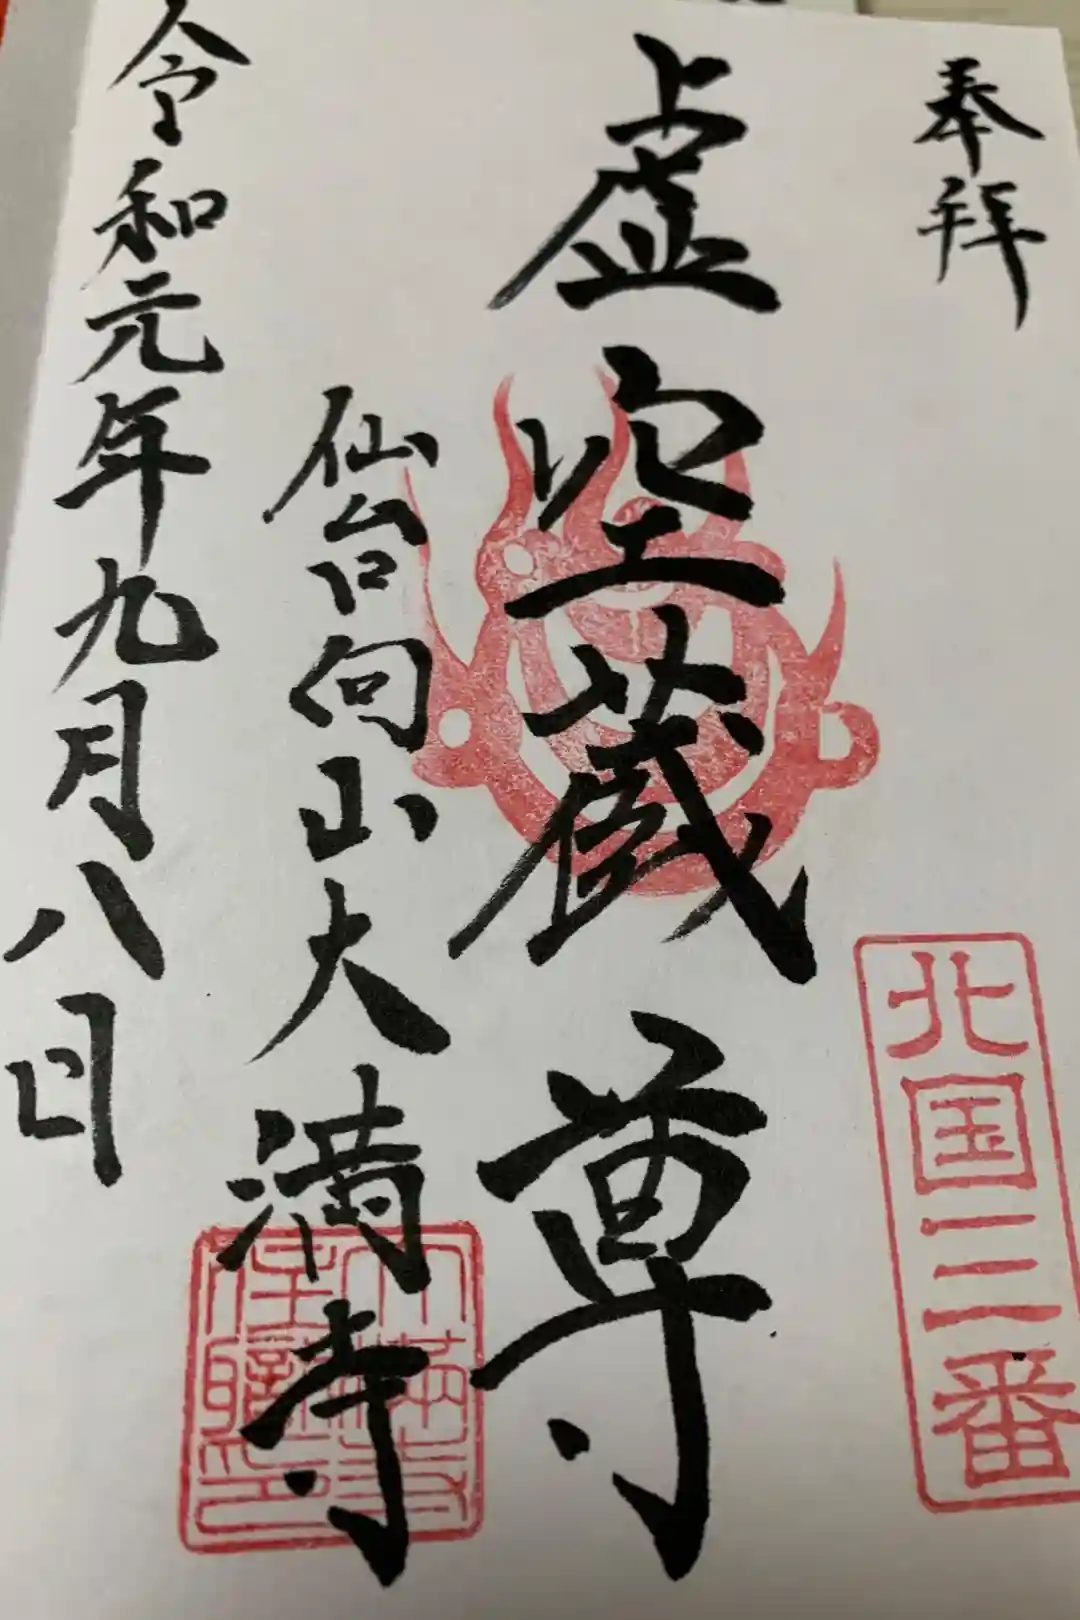 奉拜
北国三番
虚空蔵尊
仙台向山大満寺
令和元年九月八日